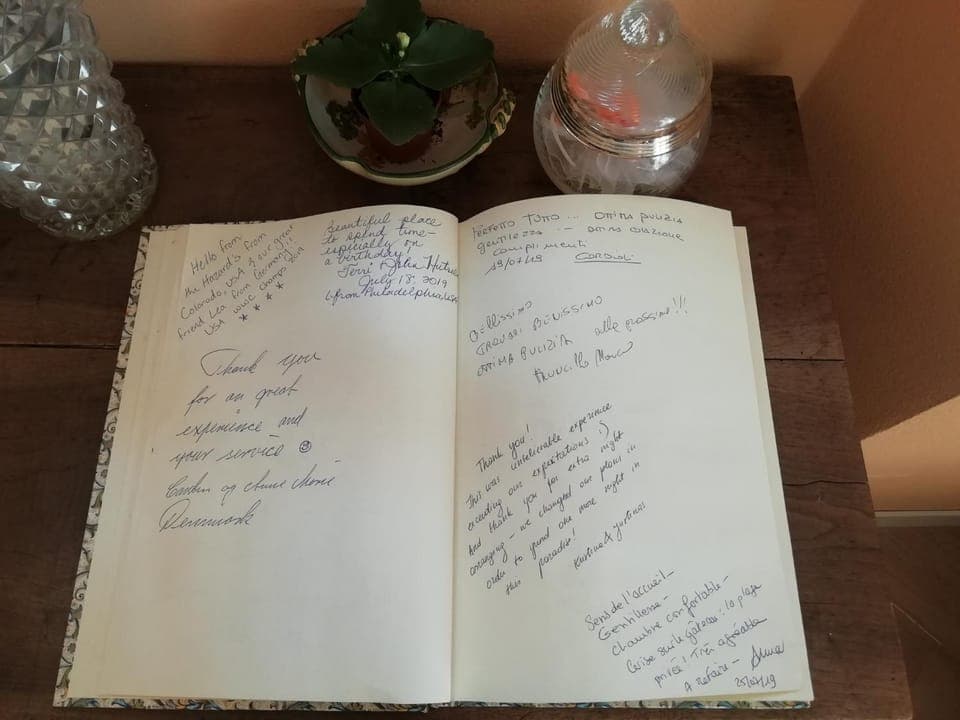 Hello from
the Hazard's from
Colorado, USA & our great
friend Lea from Germany!!
USA WWC champs 2019
beautiful place
to spend time-
especially on
a birthday!
Terri & John
July 18, 2019
from Philadelphia, USA
Thank you
for an great
experience and
your service
og Anne Marie
Denmark
PERFETTO TUTTO... OTTIMA PULIZIA
gentilezza - OTTIMA COLAZIONE
complimenti
19/07/19
Bellissimo
TROVATI BENISSIMO
OTTIMA PULIZIA alla prossima!!!
Thank you!
This was unbelievable experience
exceeding our expectations :)
And thank you for extra night
arranging - we changed our plans in
order to spend one more night in
this paradise!
Kristina & Justinas
Sens de l'accueil -
Gentillesse -
Chambre confortable -
Cerise sur le gâteau : la plage
privée ! Très agréable
A refaire - Anne
25/07/19